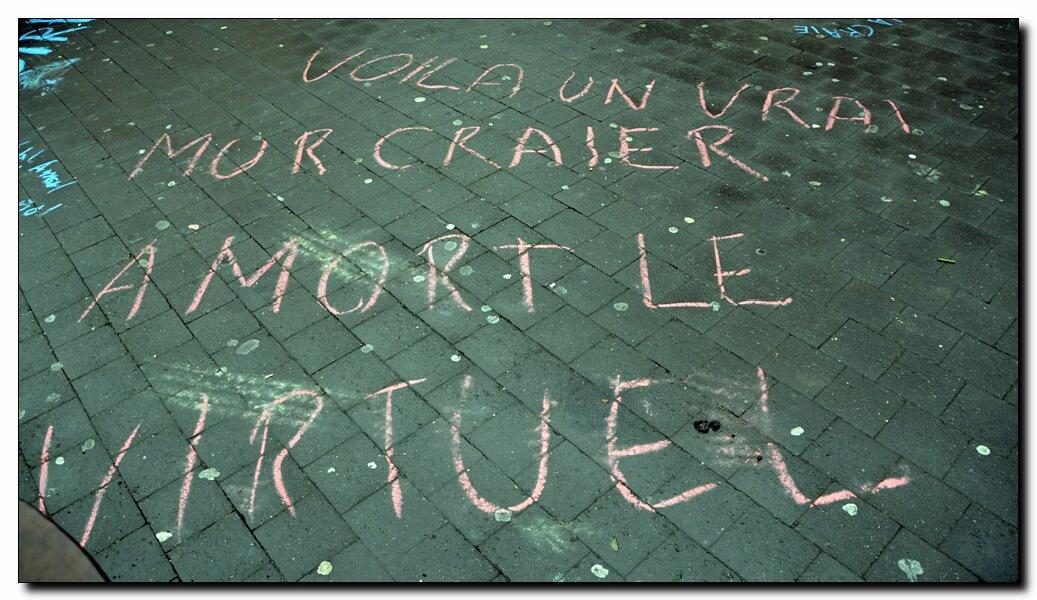 VOILA UN VRAI
MUR CRAIER
AMORT LE
VIRTUEL
CRAIE